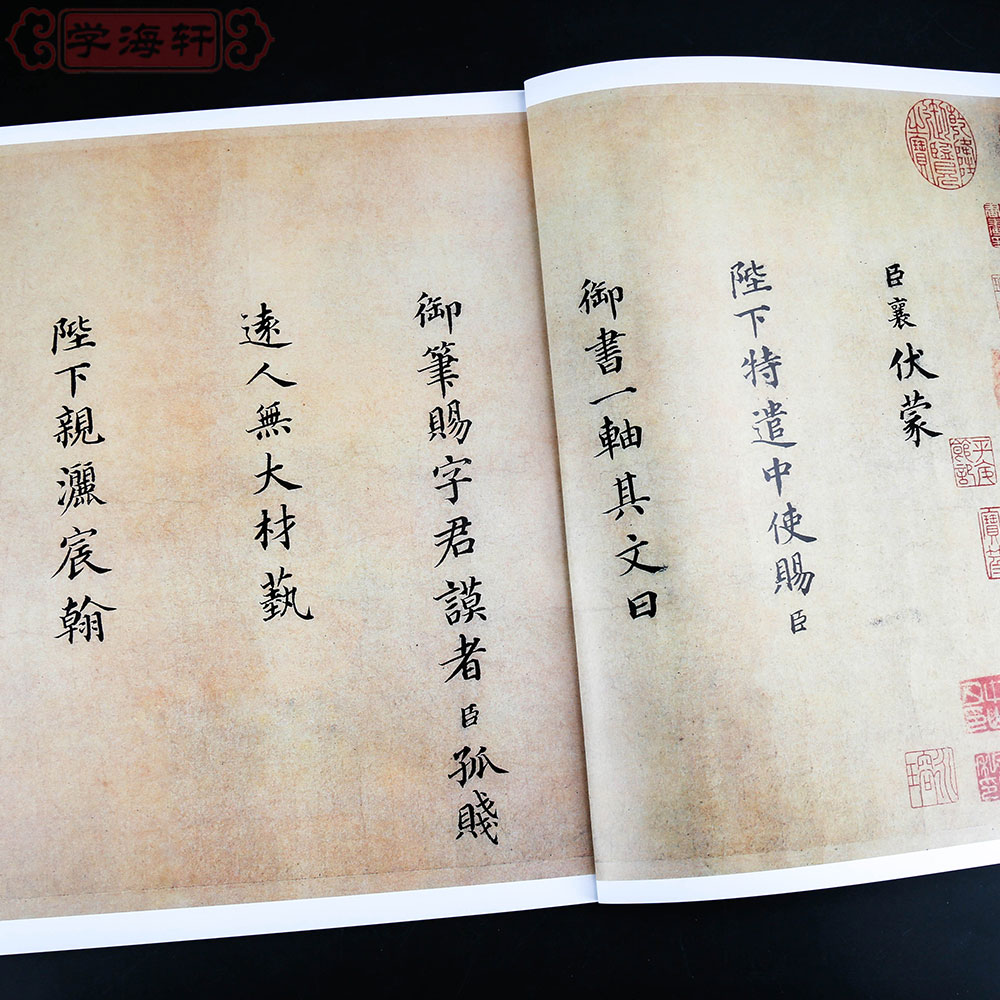 学海轩
臣襄伏蒙
陛下特遣中使賜臣
御書一軸其文曰
御筆賜字君謨者臣孤賤
遠人無大材藝
陛下親灑宸翰